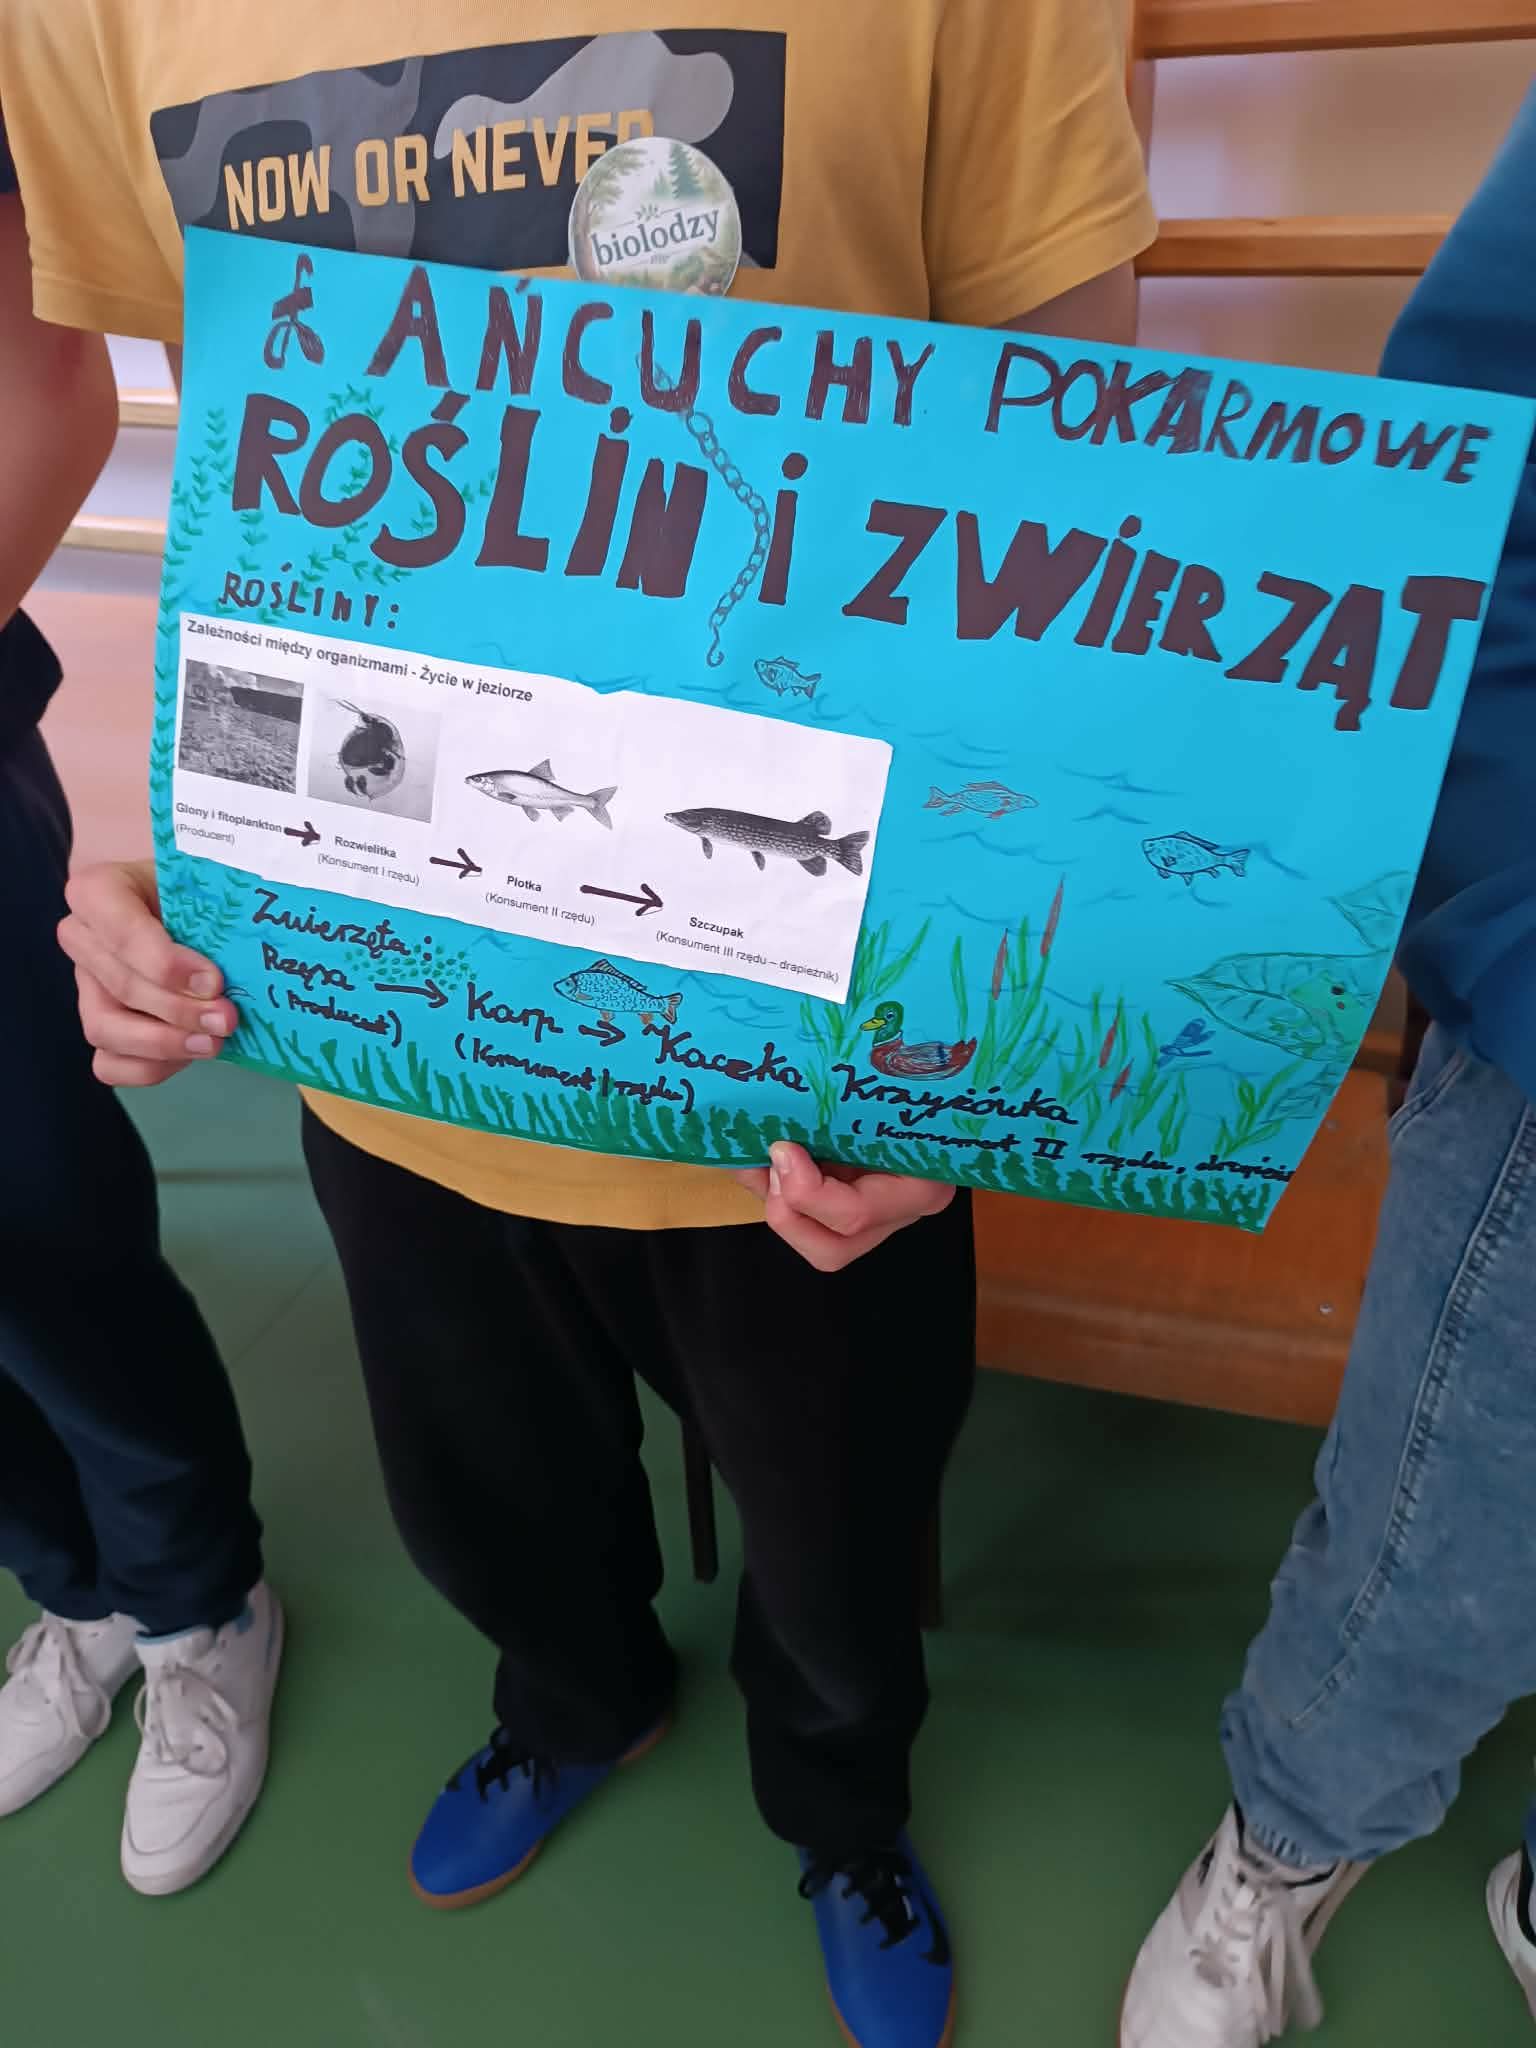 NOW OR NEVER
biolodzy
ŁAŃCUCHY POKARMOWE
ROŚLIN i ZWIERZĄT
ROŚLINY:
Zależności między organizmami - Życie w jeziorze
Glony i fitoplankton
(Producent)
Rozwielitka
(Konsument I rzędu)
Płotka
(Konsument II rzędu)
Szczupak
(Konsument III rzędu – drapieżnik)
Zwierzęta:
Rzęsa
(Producent)
Karp
(Konsument I rzędu)
Kaczka Krzyżówka
(Konsument II rzędu,